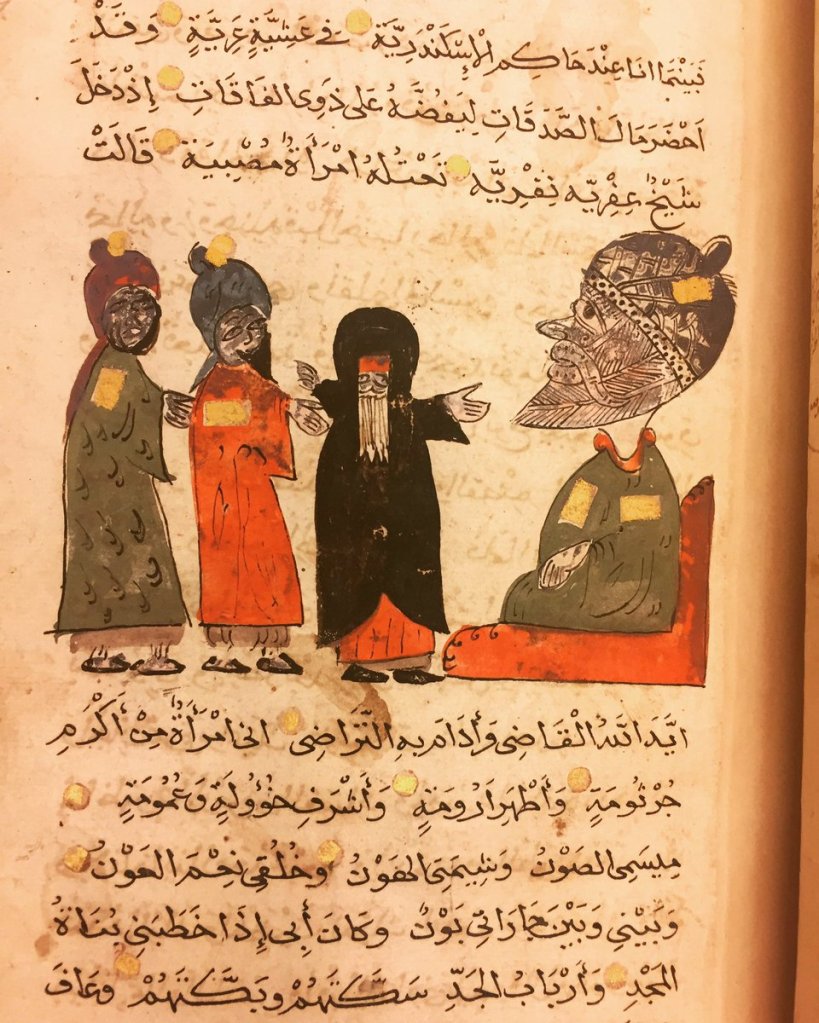 فَبَيْنَمَا انا عِنْدَ حَاكِمِ الْإِسْكَنْدَرِيَّة في عَشِيَّةٍ عَرِيَّةٍ وَقَدْ
احْضَرَ مَالَ الصَّدَقَاتِ لِيَفُضَّهُ عَلَى ذَوِي الفَاقَاتِ إِذْ دَخَلَ
شَيْخٌ عِفْرِيَّه نِفْرِيَّه تَعْتلُهُ امْرَأَةٌ مُصْبِيَة قَالَتْ
ايَّدَ اللَّهُ الْقَاضِي وَأَدَامَ بِهِ التَّرَاضِي انى امْرَأَةٌ مِنْ أَكْرَمِ
جُرْثُومَةٍ وَأَطْهَرِ أَرُومَةٍ وَأَشْرَفِ خُؤُولَةٍ وَعُمُومَةٍ
مِيسَمِي الصَّوْنُ وَشِيمَتِي الهَوْنُ وَخُلُقِي نِعْمَ العَوْنُ
وَبَيْنِي وَبَيْنَ جَارَاتِي بَوْنٌ وَكَانَ أَبِي إِذَا خَطَبَنِي بُنَاةُ
المَجْدِ وَأَرْبَابُ الجَدِّ سَكَّتَهُمْ وبَكَّتَهُمْ وَعَافَ